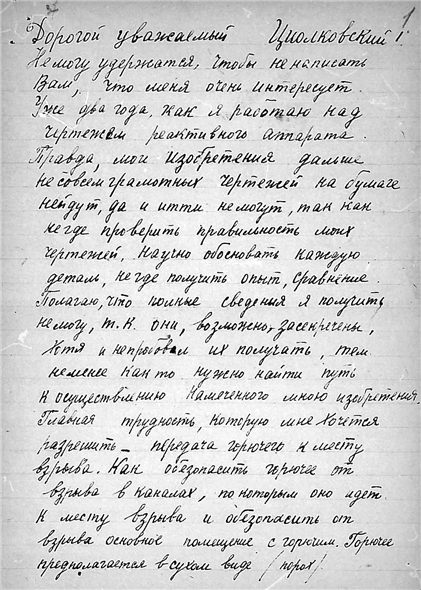 1
Дорогой уважаемый Циолковский!
Немогу удержатся, чтобы ненаписать
Вам, что меня очень интересует.
Уже два года, как я работаю над
чертежем реактивного аппарата.
Правда, мои изобретения дальше
несовсемграмотных чертежей на бумаге
нейдут, да и итти немогут, так как
негде проверить правильность моих
чертежей, научно обосновать каждую
деталь, негде получить опыт, сравнение.
Полагаю, что полные сведения я получить
немогу, т.к. они, возможно, засекречены,
Хотя и непробовал их получать, тем
неменее как то нужно найти путь
к осуществлению намеченного мною изобретения.
Главная трудность, которую мне хочется
разрешить – передача горючего к месту
взрыва. Как обезопасить горючее от
взрыва в каналах, по которым оно идет
к месту взрыва и обезопасить от
взрыва основное помещение с горючим. Горючее
предполагается в сухом виде (порох).